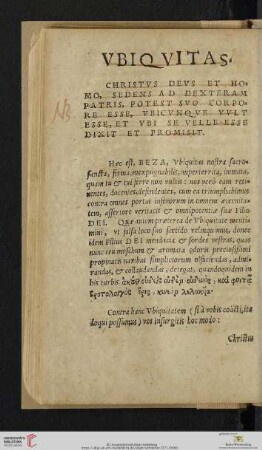 NB
VBIQVITAS.
CHRISTVS DEVS ET HO-
MO, SEDENS AD DEXTERAM
PATRIS, POTEST SVO CORPO-
RE ESSE, VBICVNQVE VVLT
ESSE, ET VBI SE VELLE ESSE
DIXIT ET PROMISIT.
Hec est, BEZA, Vbiquitas nostra sacro-
sancta, firma, inexpugnabilis, imperterrita, immota,
quam tu & tui ferre non vultis: nos verò eam reti-
nentes, docentes, defendentes, cum ea triumphabimus
contra omnes portas inferorum in omnem æternita-
tem, assertores veritatis & omnipotentiæ sua Filij
DEI. Quæ autem præterea de Vbiquitate menti-
mini, vt ipso loco suo fœtida relinquimus, donec
idem Filius DEI mendacia & sordes vestras, quas
nunc ceu moschum & aromata odoris præstantissimi
propinatis naribus simplicium olfaciendas, admi-
randas, & collaudandas, detegat, quandoquidem in
his turbis
Contra hanc Vbiquitatem (si à vobis coacti, ita
loqui possumus) vos insurgitis hoc modo:
Christus